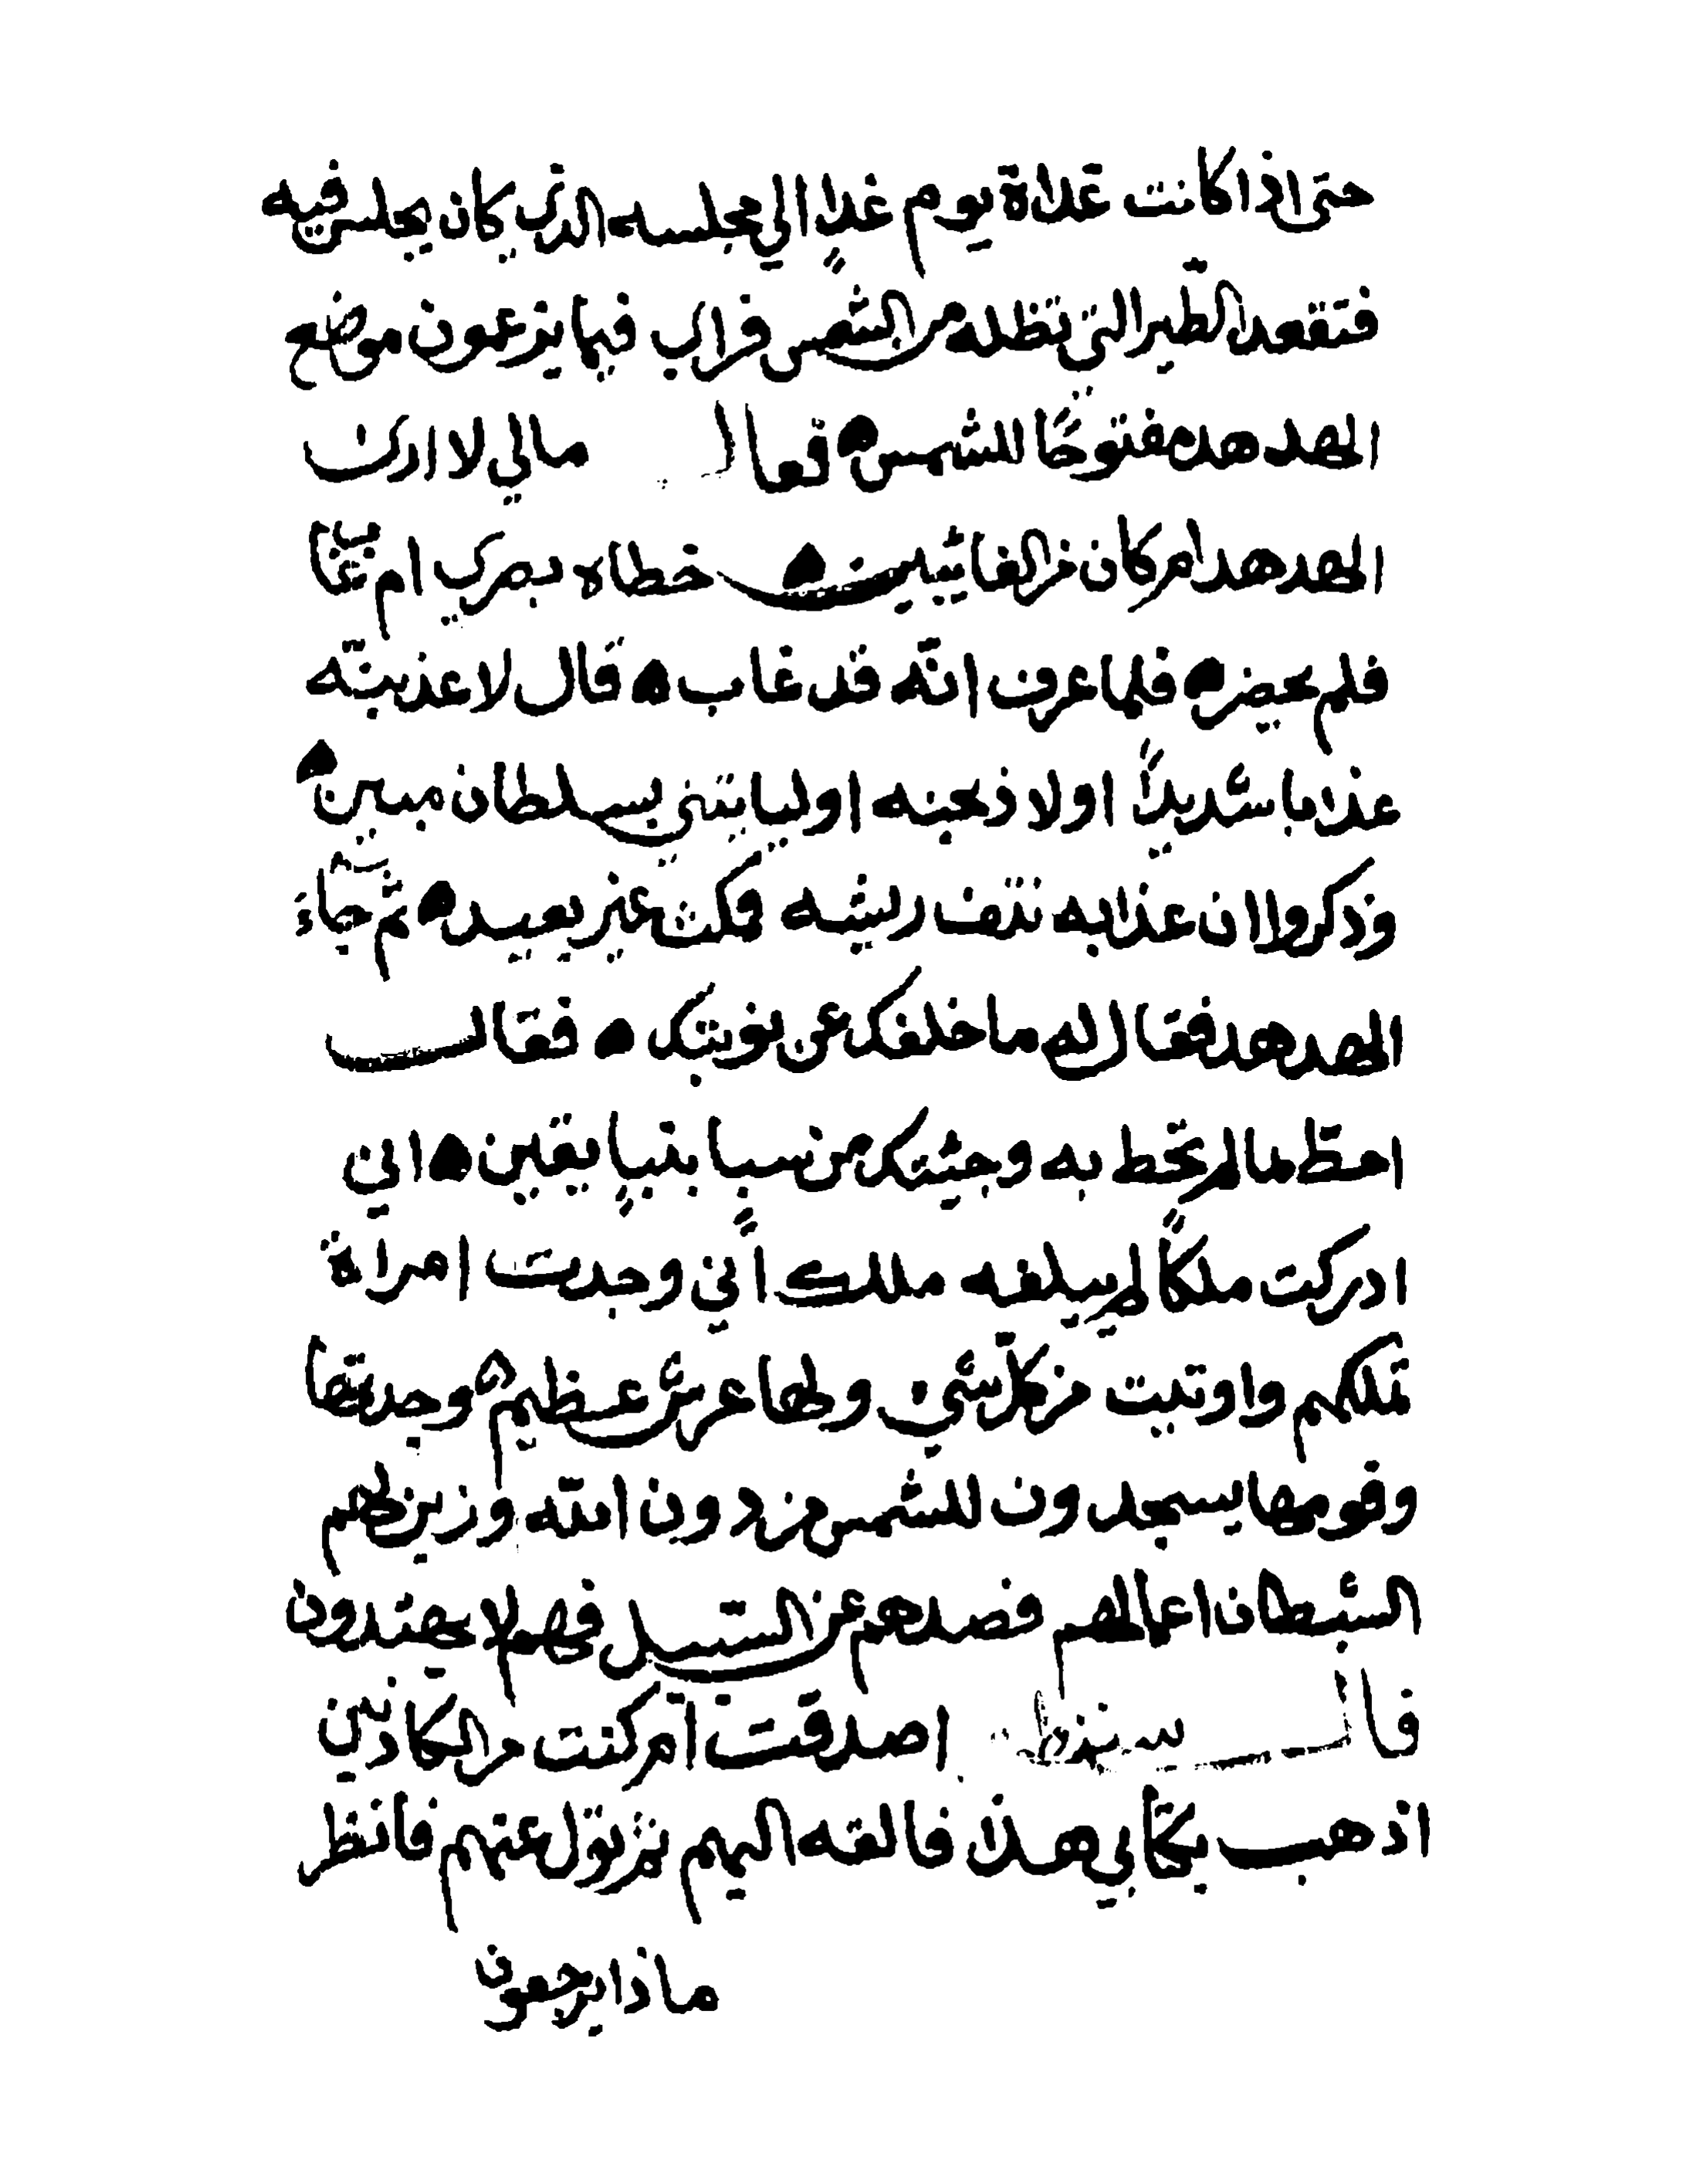 حتى اذا كانت غداة يوم غدا الي مجلسه الذي كان يجلس فيه
فتقعد الطير التي تظله من الشمس فراي فيما يزعمون موضع
الهدهد مفتوحًا للشمس فقال مالي لا اري
الهدهد ام كان من الغائبين خطاه بصري ام
فلم يحضر فلما عرف انه قد غاب قال لاعذبنه
عذابا شديدًا اولا ذبحنه اولياتيني بسلطان مبين
وذكروا ان عذابه نتف ريشه فمكث غير بعيد ثم جاء
الهدهد فقال له ما خلفك عن نوبتك فقال
احطت بما لم تحط به وجئتك من سبا بنبا يقين اني
ادركت ملكًا لم يبلغه ملك اني وجدت امراة
تملكهم واوتيت من كل شي ولها عرش عظيم وجدتها
وقومها يسجدون للشمس من دون الله وزين لهم
الشيطان اعمالهم فصدهم عن السبيل فهم لا يهتدون
قال سننظر اصدقت ام كنت من الكاذبين
اذهب بكتابي هذا فالقه اليهم ثم تول عنهم فانظر
ماذا يرجعون